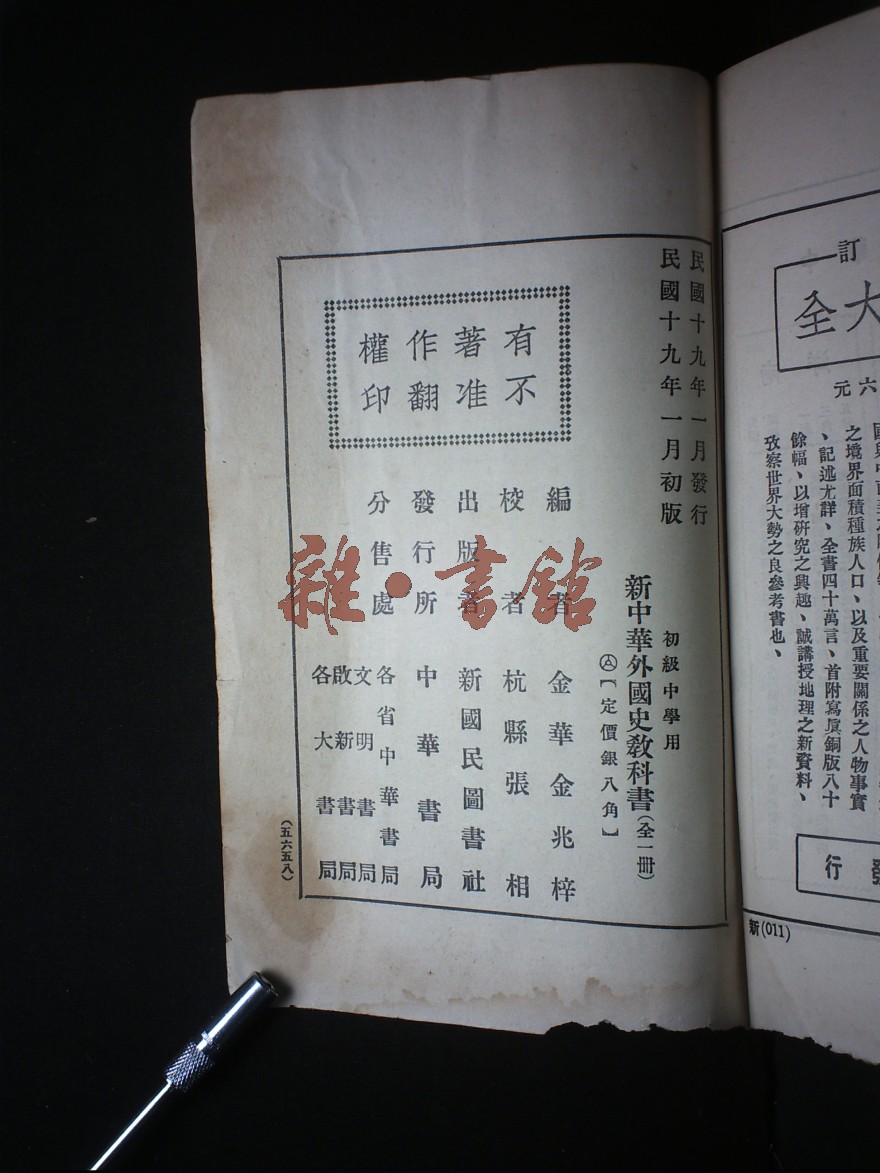 訂
大全
六元
之境界面積種族人口、以及重要關係之人物事實
、記述尤詳、全書四十萬言、首附寫眞銅版八十
餘幅、以增硏究之興趣、誠講授地理之新資料、
攷察世界大勢之良參考書也、
發行
新(011)
民國十九年一月發行
民國十九年一月初版
初級中學用
新中華外國史敎科書(全一冊)
【定價銀八角】
有著作權
不准翻印
編者 金華金兆梓
校者 杭縣張相
出版者 新國民圖書社
發行所 中華書局
分售處 各省中華書局
文明書局
啟新書局
各大書局
(五六五八)
雜·書館